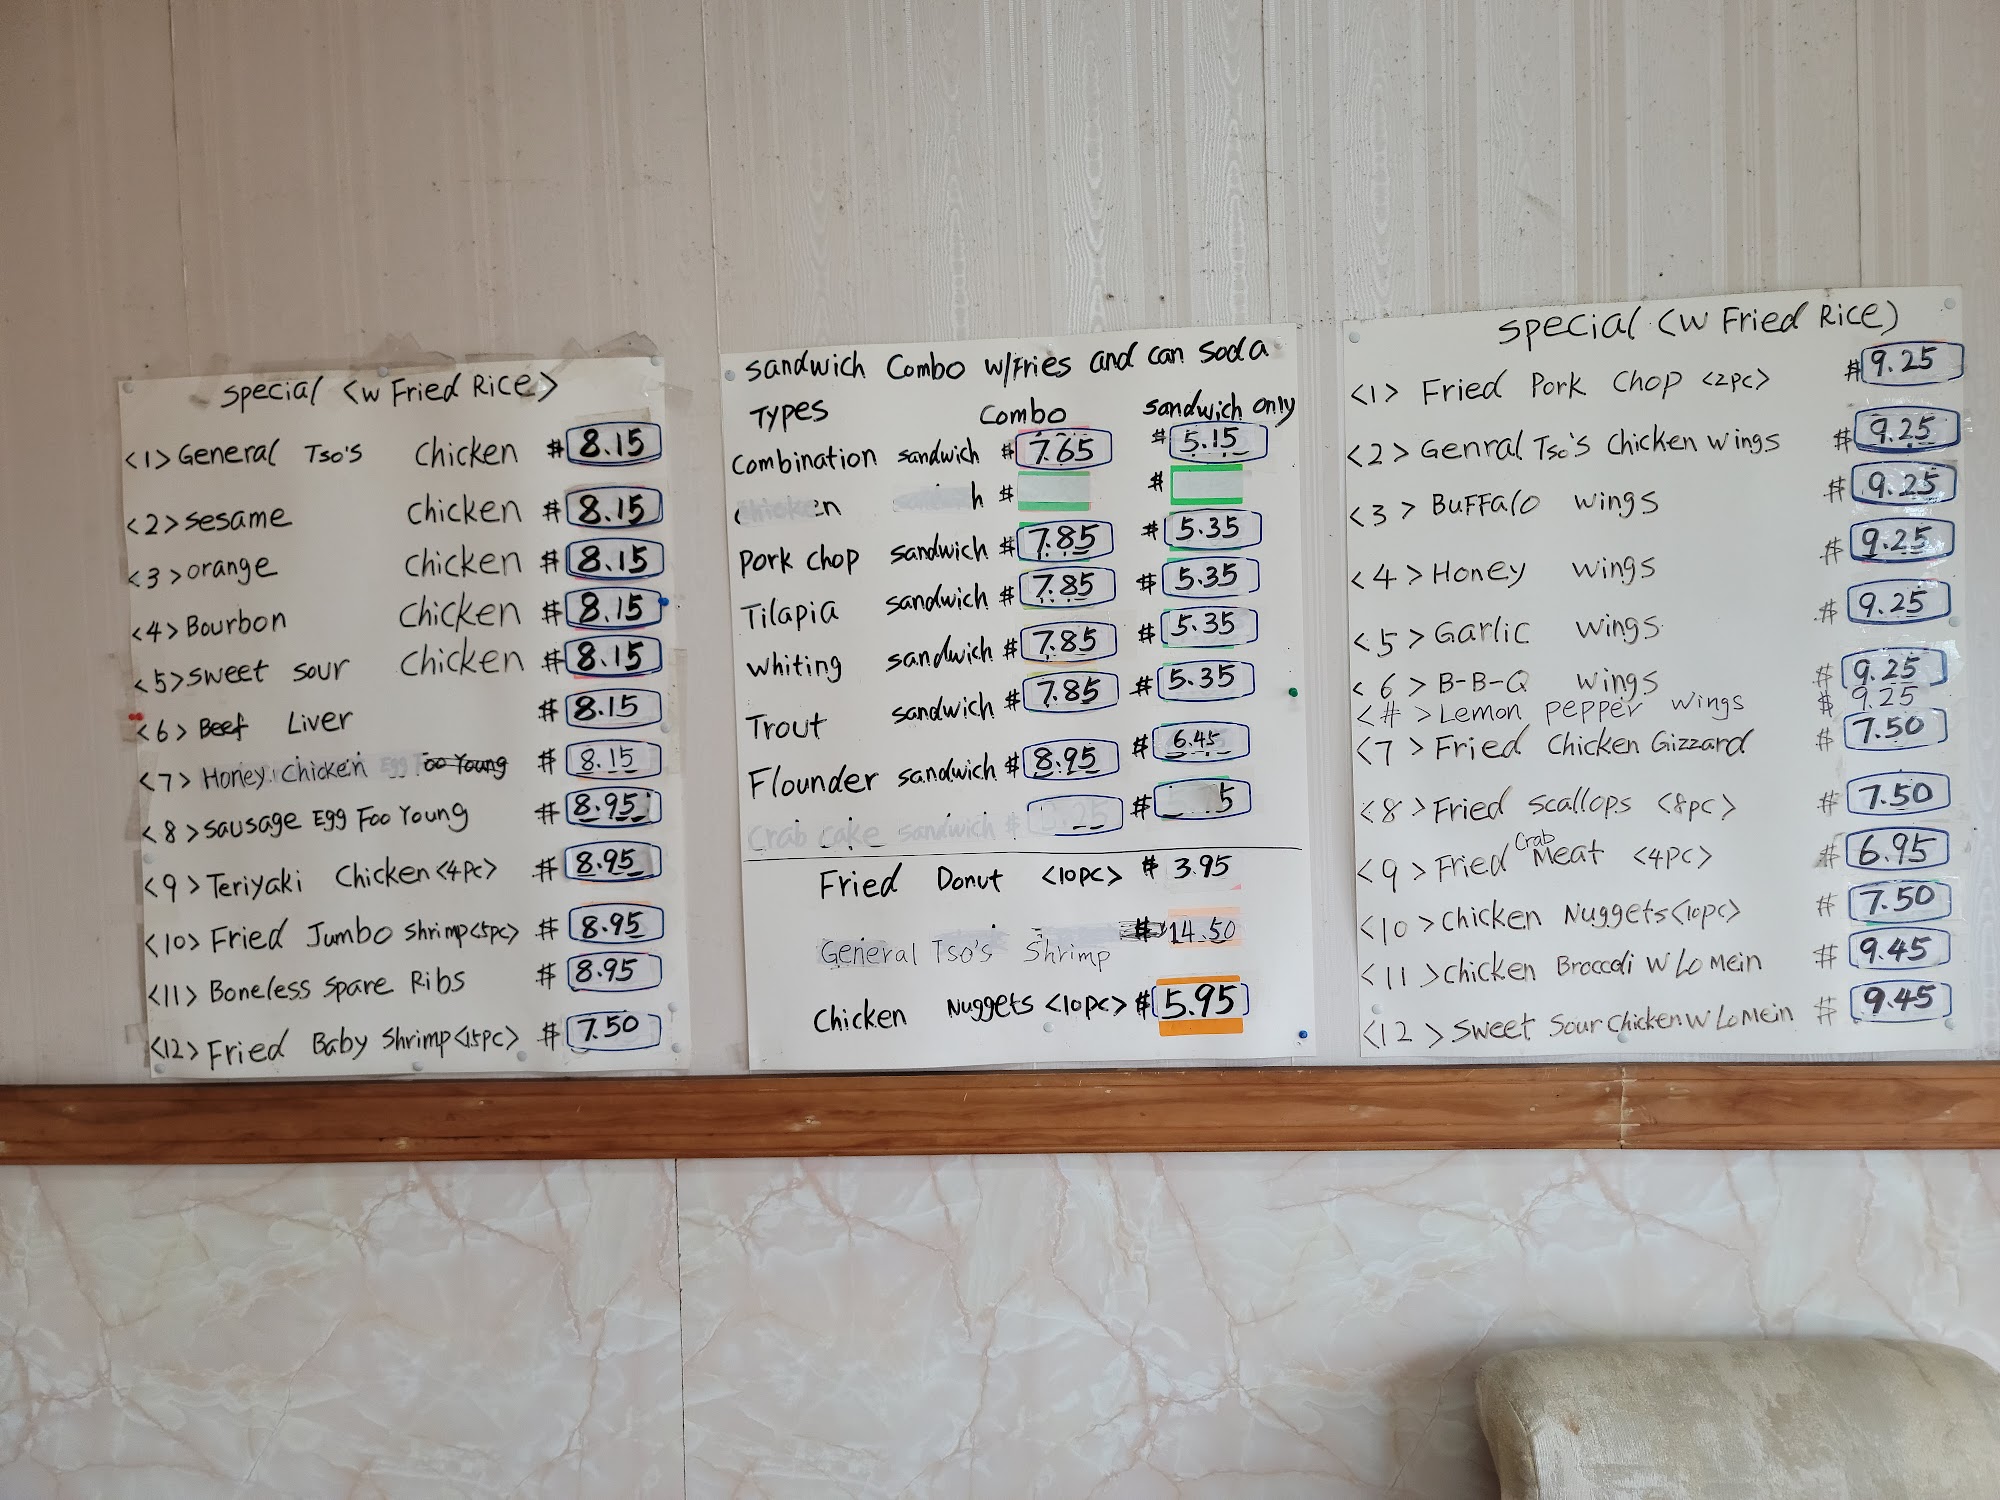 Special <w Fried Rice>
<1> General Tso's Chicken $ 8.15
<2> Sesame Chicken $ 8.15
<3> orange Chicken $ 8.15
<4> Bourbon Chicken $ 8.15
<5> Sweet Sour Chicken $ 8.15
<6> Beef Liver $ 8.15
<7> Honey Chicken Egg Foo Young $ 8.15
<8> Sausage Egg Foo Young $ 8.95
<9> Teriyaki Chicken <4pc> $ 8.95
<10> Fried Jumbo Shrimp <5pc> $ 8.95
<11> Boneless Spare Ribs $ 8.95
<12> Fried Baby Shrimp <15pc> $ 7.50
Sandwich Combo w/Fries and can Soda
Types Combo Sandwich only
Combination sandwich $ 7.65 $ 5.15
Chicken $ $
Pork Chop sandwich $ 7.85 $ 5.35
Tilapia sandwich $ 7.85 $ 5.35
Whiting sandwich $ 7.85 $ 5.35
Trout sandwich $ 7.85 $ 5.35
Flounder sandwich $ 8.95 $ 6.45
Crab cake sandwich $ $ 5
Fried Donut <10pc> $ 3.95
General Tso's Shrimp $ 14.50
Chicken Nuggets <10pc> $ 5.95
Special (w Fried Rice)
<1> Fried Pork Chop <2pc> $ 9.25
<2> Genral Tso's Chicken Wings $ 9.25
<3> BuFFalo wings $ 9.25
<4> Honey wings $ 9.25
<5> Garlic wings $ 9.25
<6> B-B-Q wings $ 9.25
<#> Lemon pepper wings $ 9.25
<7> Fried Chicken Gizzard $ 7.50
<8> Fried Scallops <8pc> $ 7.50
<9> Fried Crab Meat <4pc> $ 6.95
<10> Chicken Nuggets <10pc> $ 7.50
<11> Chicken Broccoli w Lo Mein $ 9.45
<12> Sweet Sour Chicken w Lo Mein $ 9.45